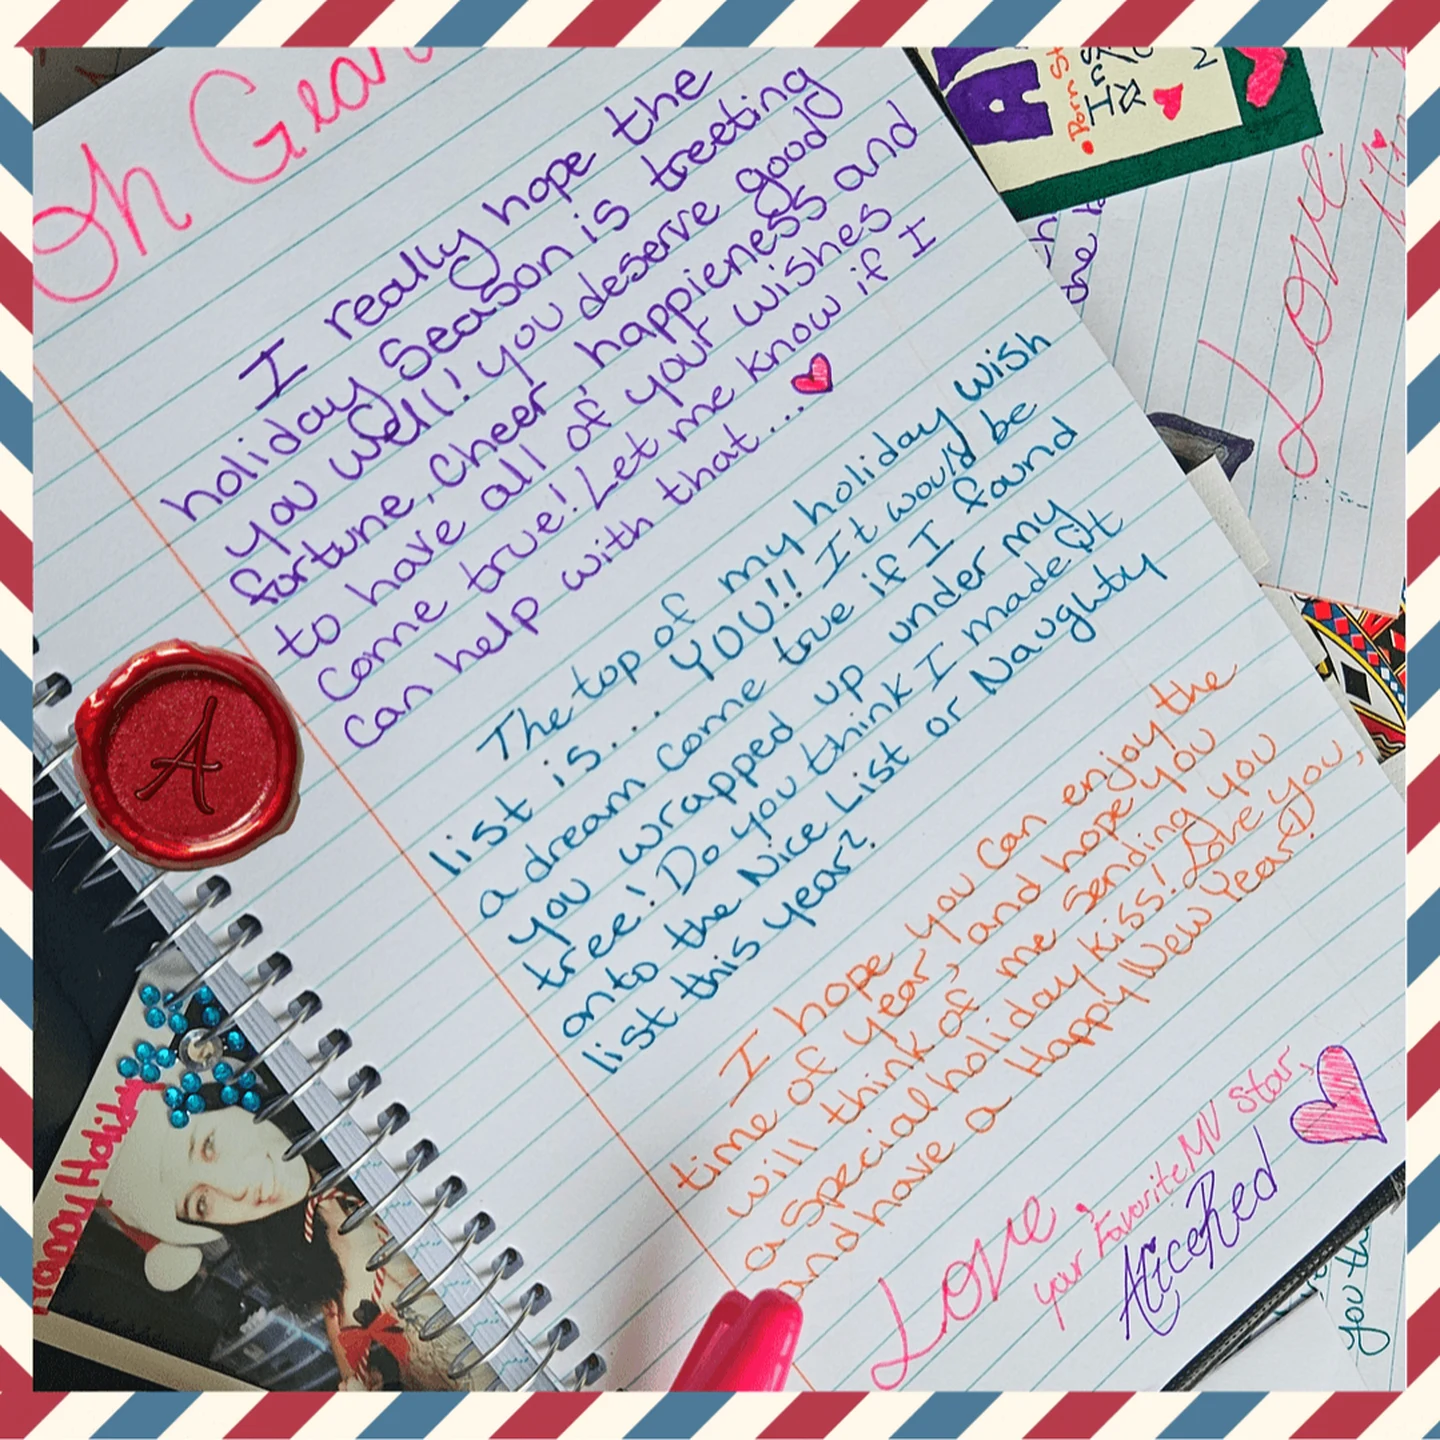 Oh Gean
I really hope the
holiday Season is treeting
you well! you deserve good
fortune, Cheer, happieness and
to have all of your wishes
come true! Let me know if I
can help with that...
The top of my holiday wish
list is... YOU!! It would be
a dream come true if I found
you wrapped up under my
tree! Do you think I made it
onto the Nice List or Naughty
list this year?
I hope you can enjoy the
time of year, and hope you
will think of me sending you
a special holiday kiss! Love you,
and have a Happy New Year!
Love,
your Favorite MV Star,
AliceRed
A
Happy Holiday
Porn St
Love
you th